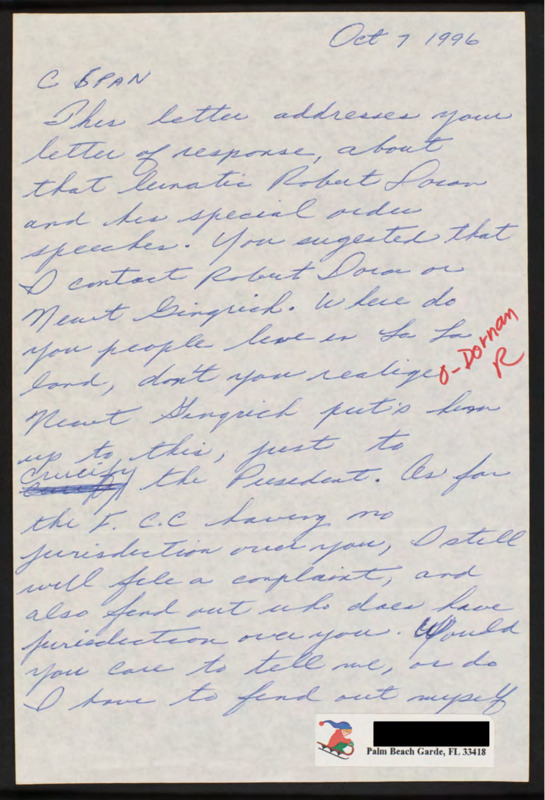 Oct 7 1996
C SPAN
This letter addresses your
letter of response, about
that lunatic Robert Doran
and his special order
speeches. You sugested that
I contact Robert Doran or
Newt Gingrich. Where do
you people live in La La
land, don't you realize
O-Dornan
R
Newt Gingrich put's him
up to this, just to
crucify the President. As for
the F. C.C having no
jurisdiction over you, I still
will file a complaint, and
also find out who does have
jurisdiction over you. Would
you care to tell me, or do
I have to find out myself
Palm Beach Garde, FL 33418